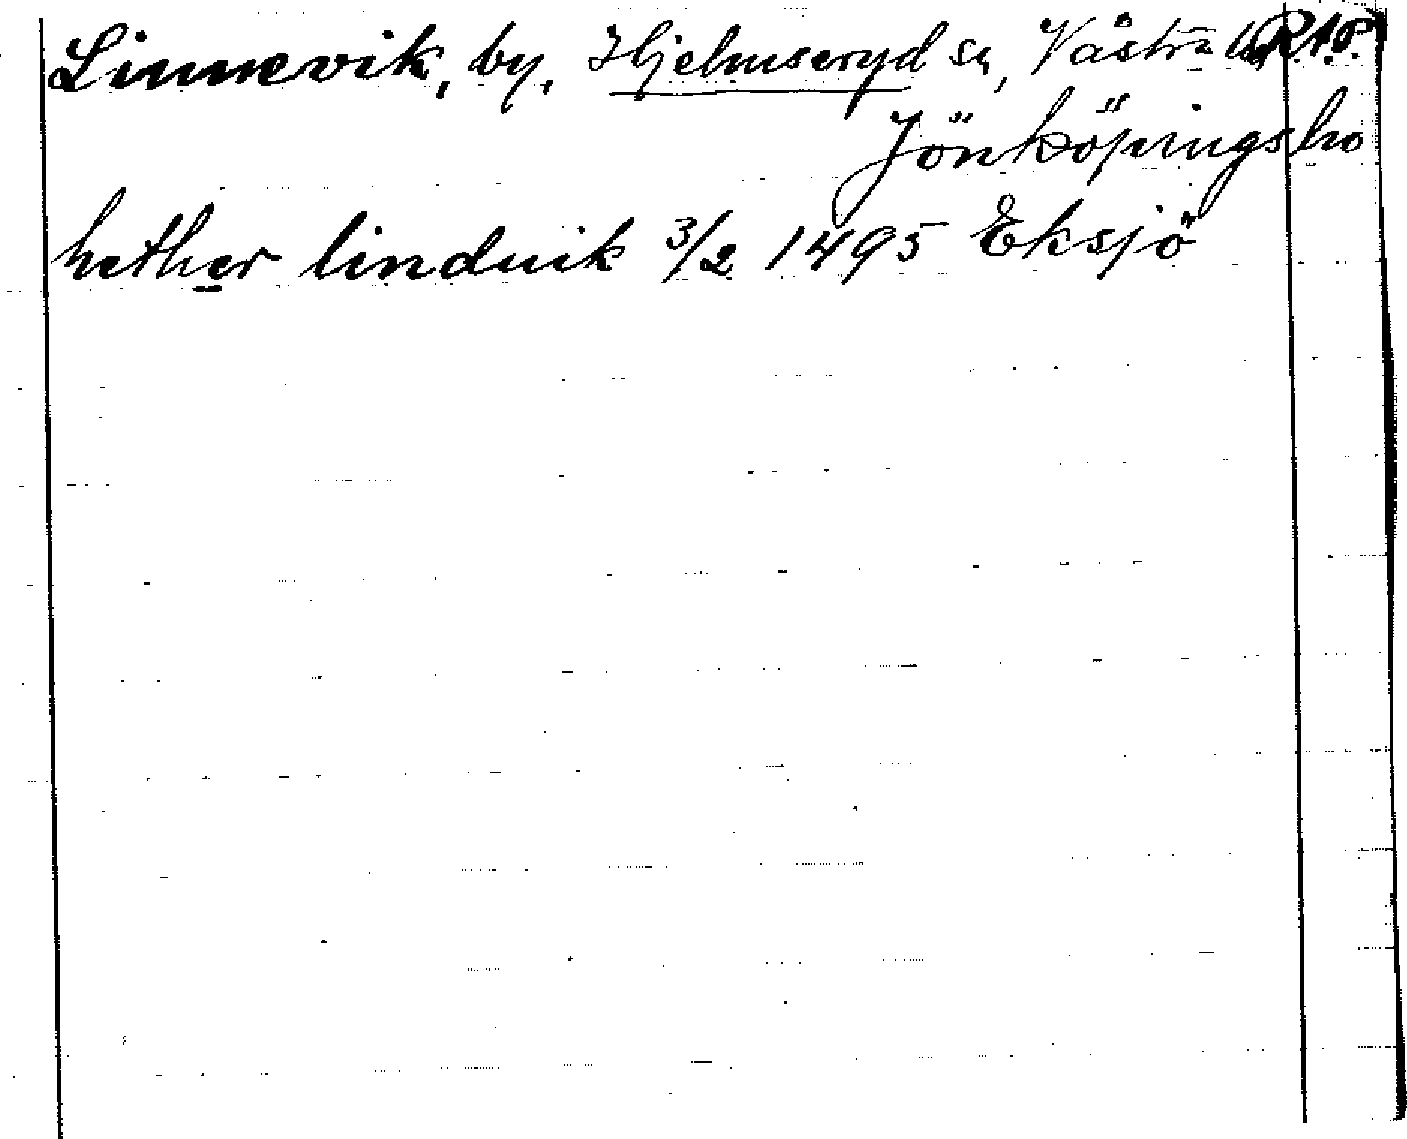 Linnevik, by, Hjelmseryd sn, Västra
Jönköpings
hether linduik 3/2 1495 Eksjö